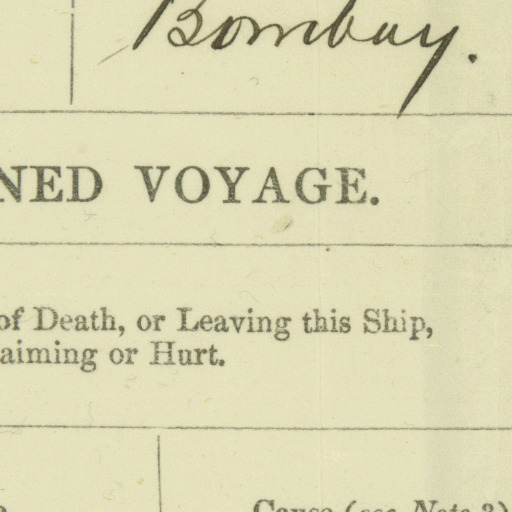 Bombay.
NED VOYAGE.
of Death, or Leaving this Ship,
aiming or Hurt.
Cause (see Note 3)